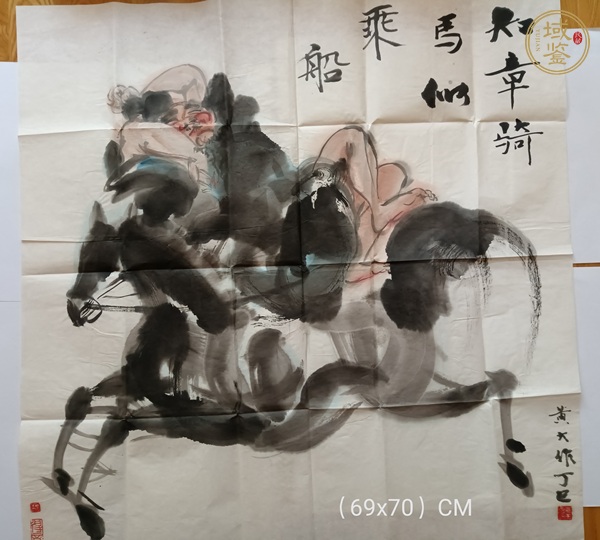 知章骑
馬似
乘
船
黄大作丁巳
域鉴
（69x70）CM